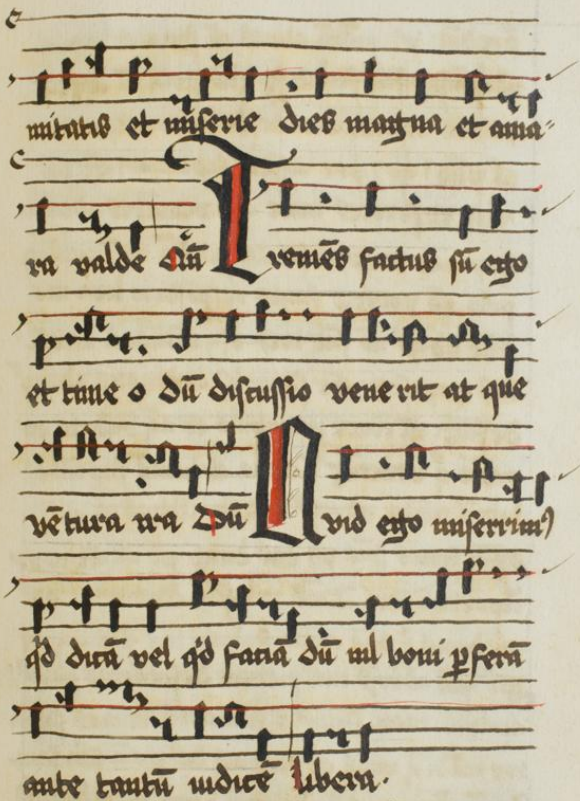 mitatis et miserie dies magna et ama-
ra valde Cū Tremēs factus sū ego
et time o dū discussio vene rit at que
vētura ira Dū Quid ego miserrimꝰ
qd dicā vel qd faciā dū nil boni ꝑferā
ante tantū iudicē libera.